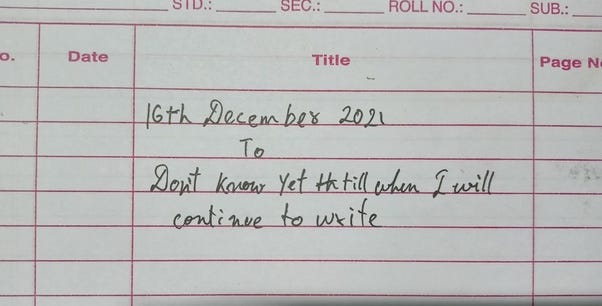 STD.: SEC.: ROLL NO.: SUB.:
Date Title
16th December 2021
To
Don't know Yet th till when I will
continue to write